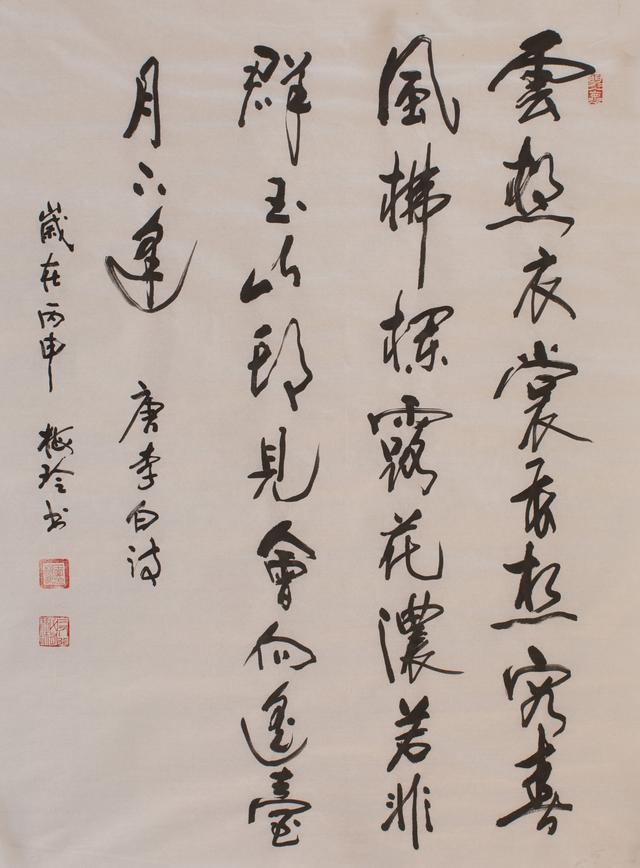 雲想衣裳花想容春
風拂檻露花濃若非
群玉山頭見會向遙臺
月下逢 唐李白詩
歲在丙申 梅玲書